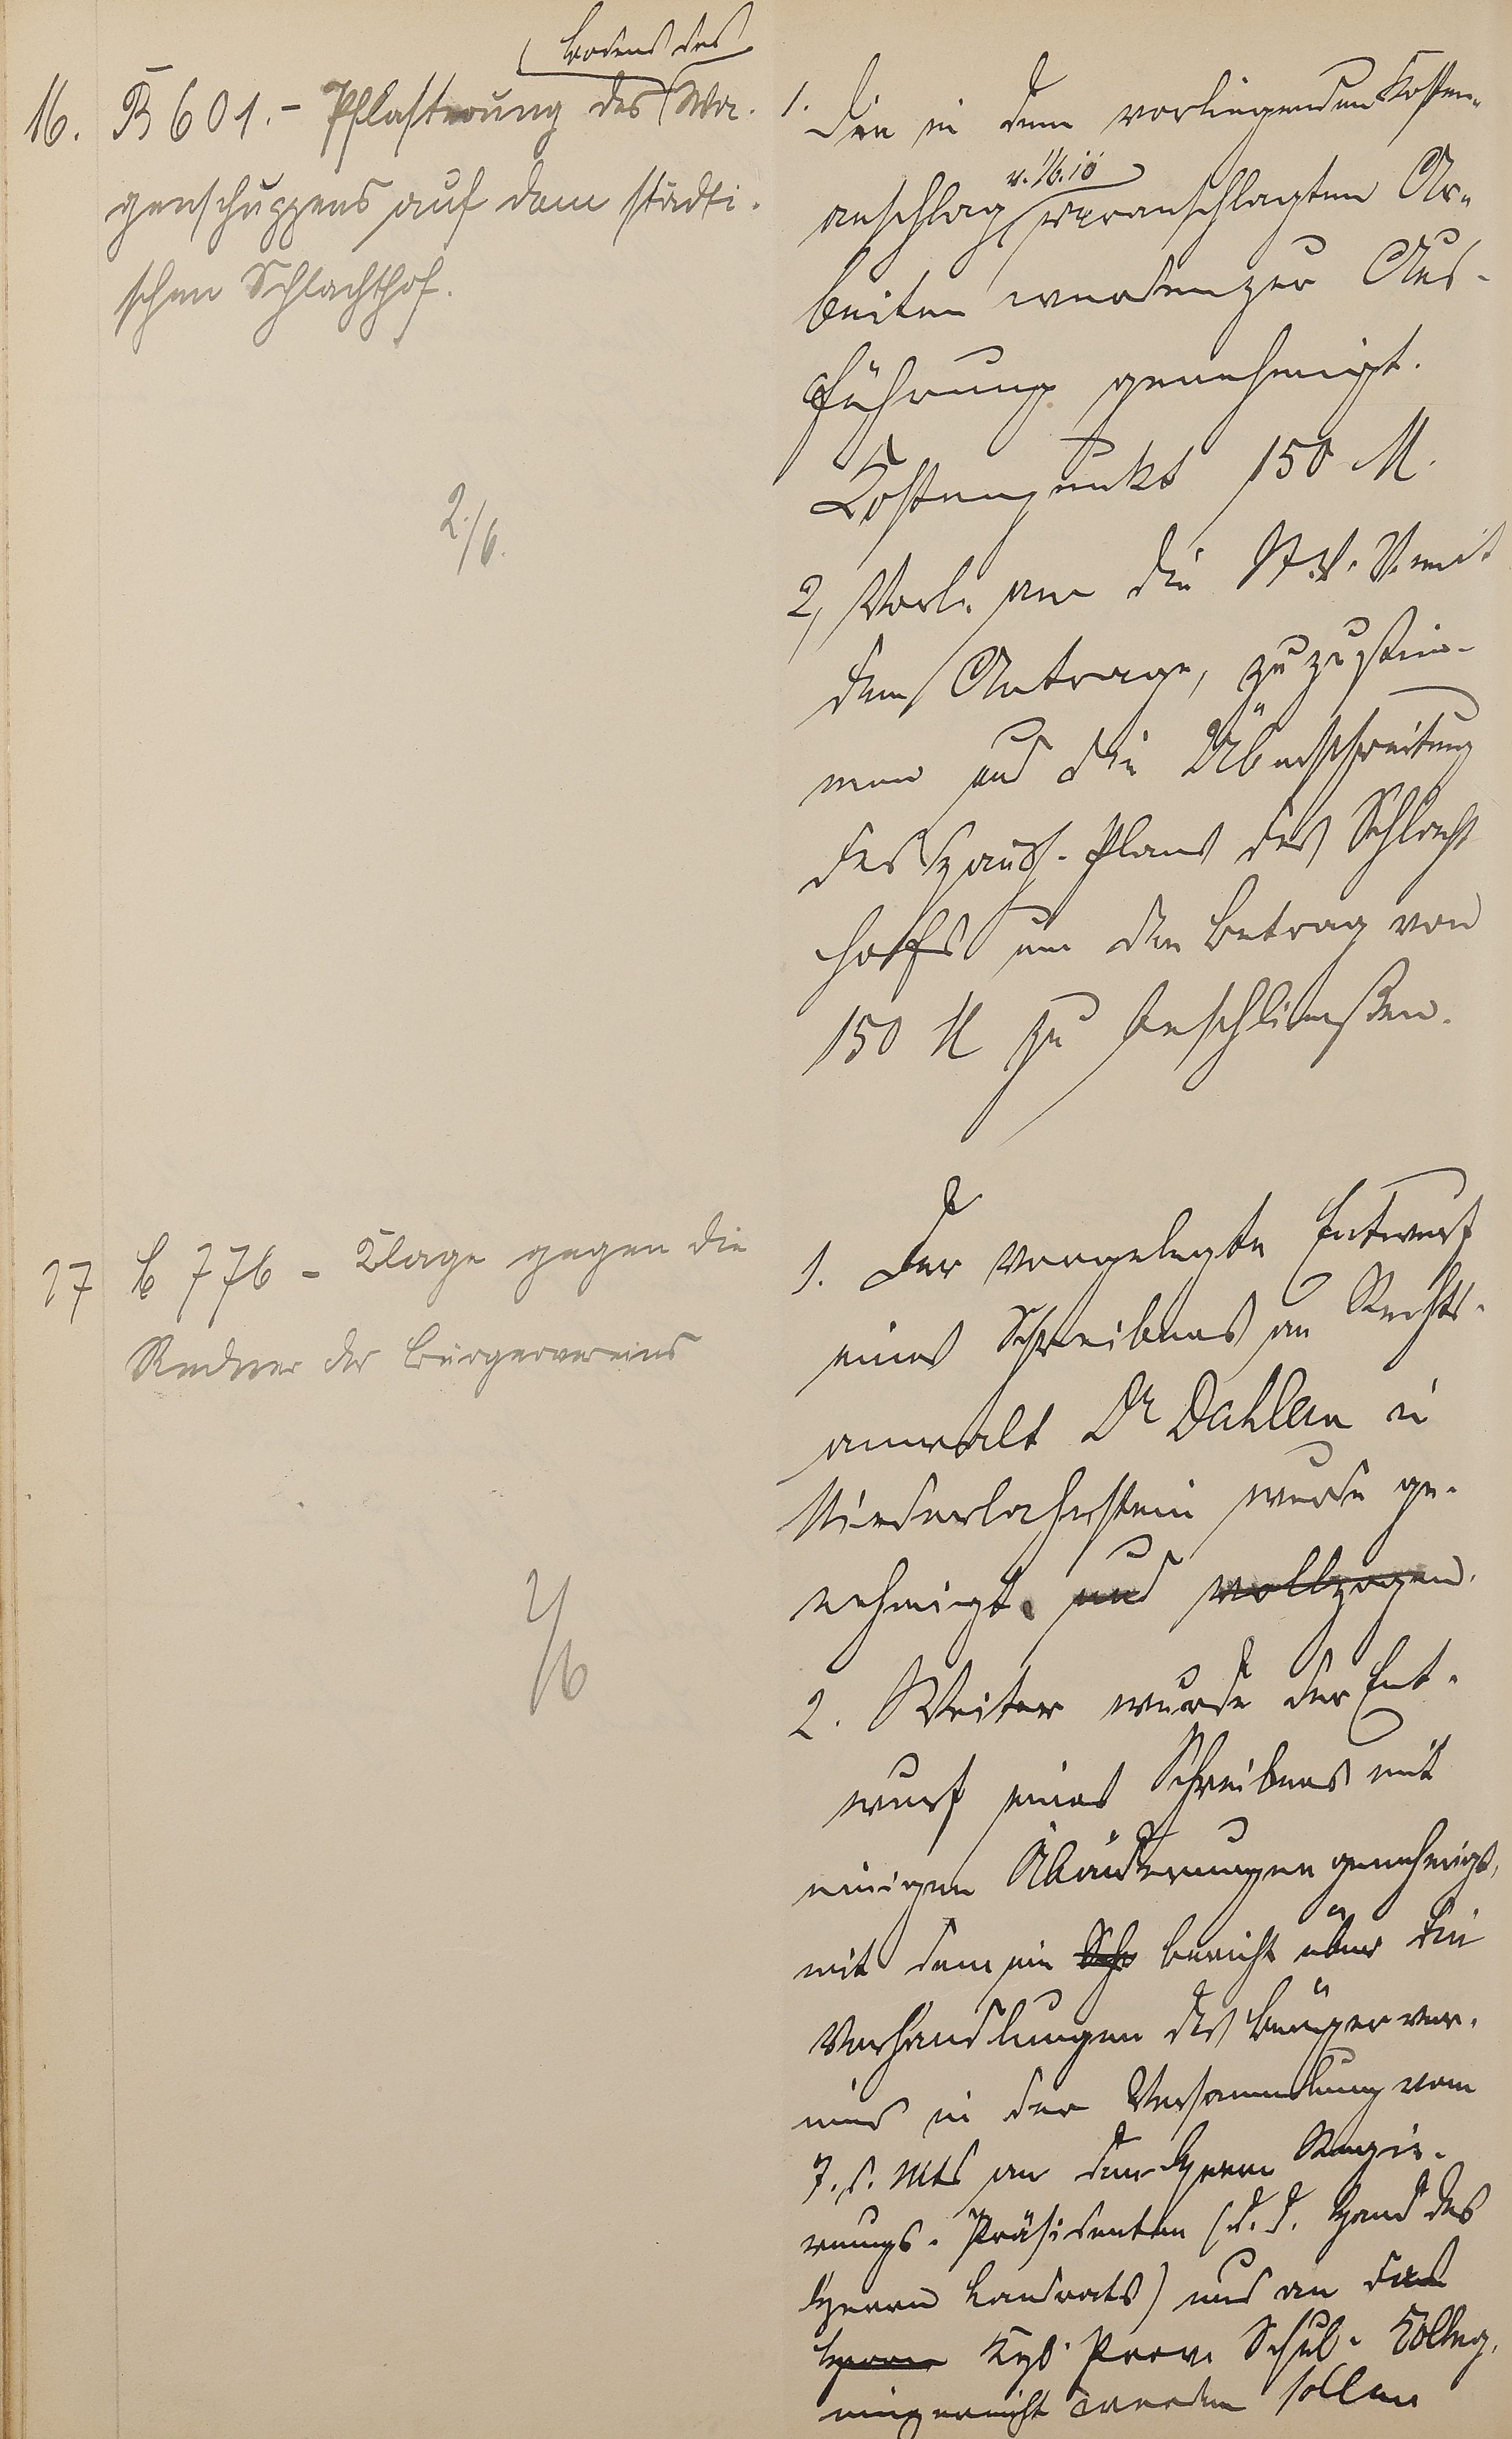 bodens des
16. B 601.- Pflasterung des Wa-
genschuppens auf dem städti-
schen Schlachthof.
2./6.
1. Die in dem vorliegenden Kosten-
anschlag veranschlagten Ar-
v. 1/6. 10
beiten werden zur Aus-
führung genehmigt.
Kostenpunkt 150 M.
2, Vorl. an die St. V. V. mit
dem Antrage, zuzustim-
men und die Überschreitung
des Haush.-Plans des Schlacht
hofs um den Betrag von
150 M zu beschließen.
17 b 776 - Klage gegen die
Redner des Bürgervereins
2/6
1. Der vorgelegte Entwurf
eines Schreibens an Rechts-
anwalt Dr Dahlem in
Niederlahnstein wurde ge-
nehmigt. und vollzogen.
2. Weiter wurde der Ent-
wurf eines Schreibens mit
einigen Abänderungen genehmigt,
mit dem ein Sch Bericht über die
Verhandlungen des Bürgerver-
eins in der Versammlung vom
7. d. Mts an den Herrn Regie-
rungs-Präsidenten (d. d. Hand des
Herrn Landrats) und an das
Herrn Kgl. Prov. Schul-Colleg.
eingereicht werden sollen